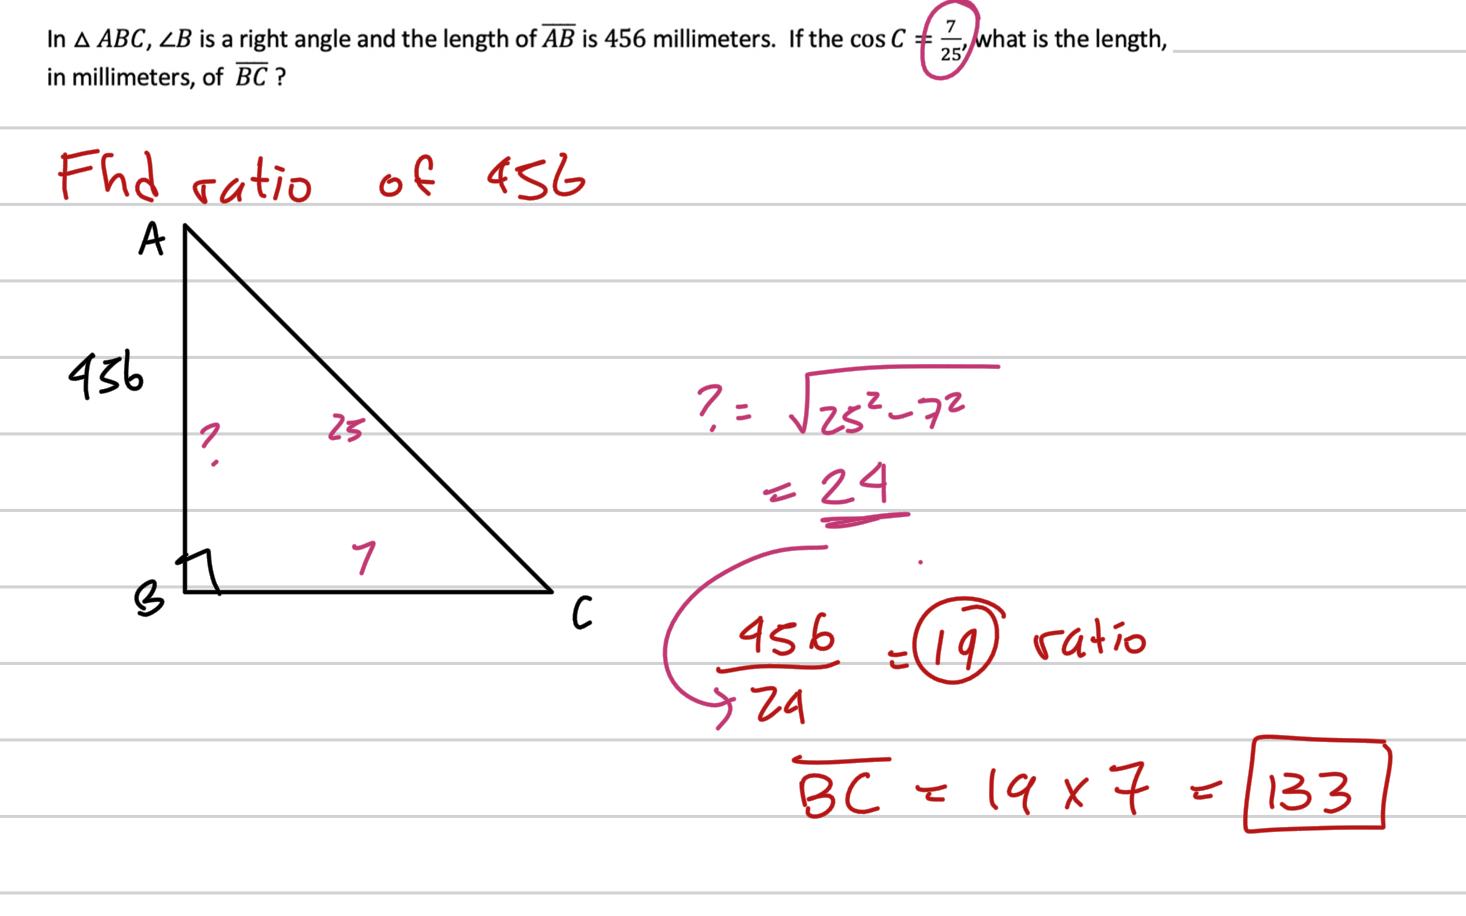 In △ ABC, ∠B is a right angle and the length of A̅B̅ is 456 millimeters. If the cos C = 7/25, what is the length,
in millimeters, of B̅C̅ ?
Find ratio of 456
A
456
?
25
7
B
C
? = √25² − 7²
= 24
456/24 = 19 ratio
B̅C̅ = 19 x 7 = 133